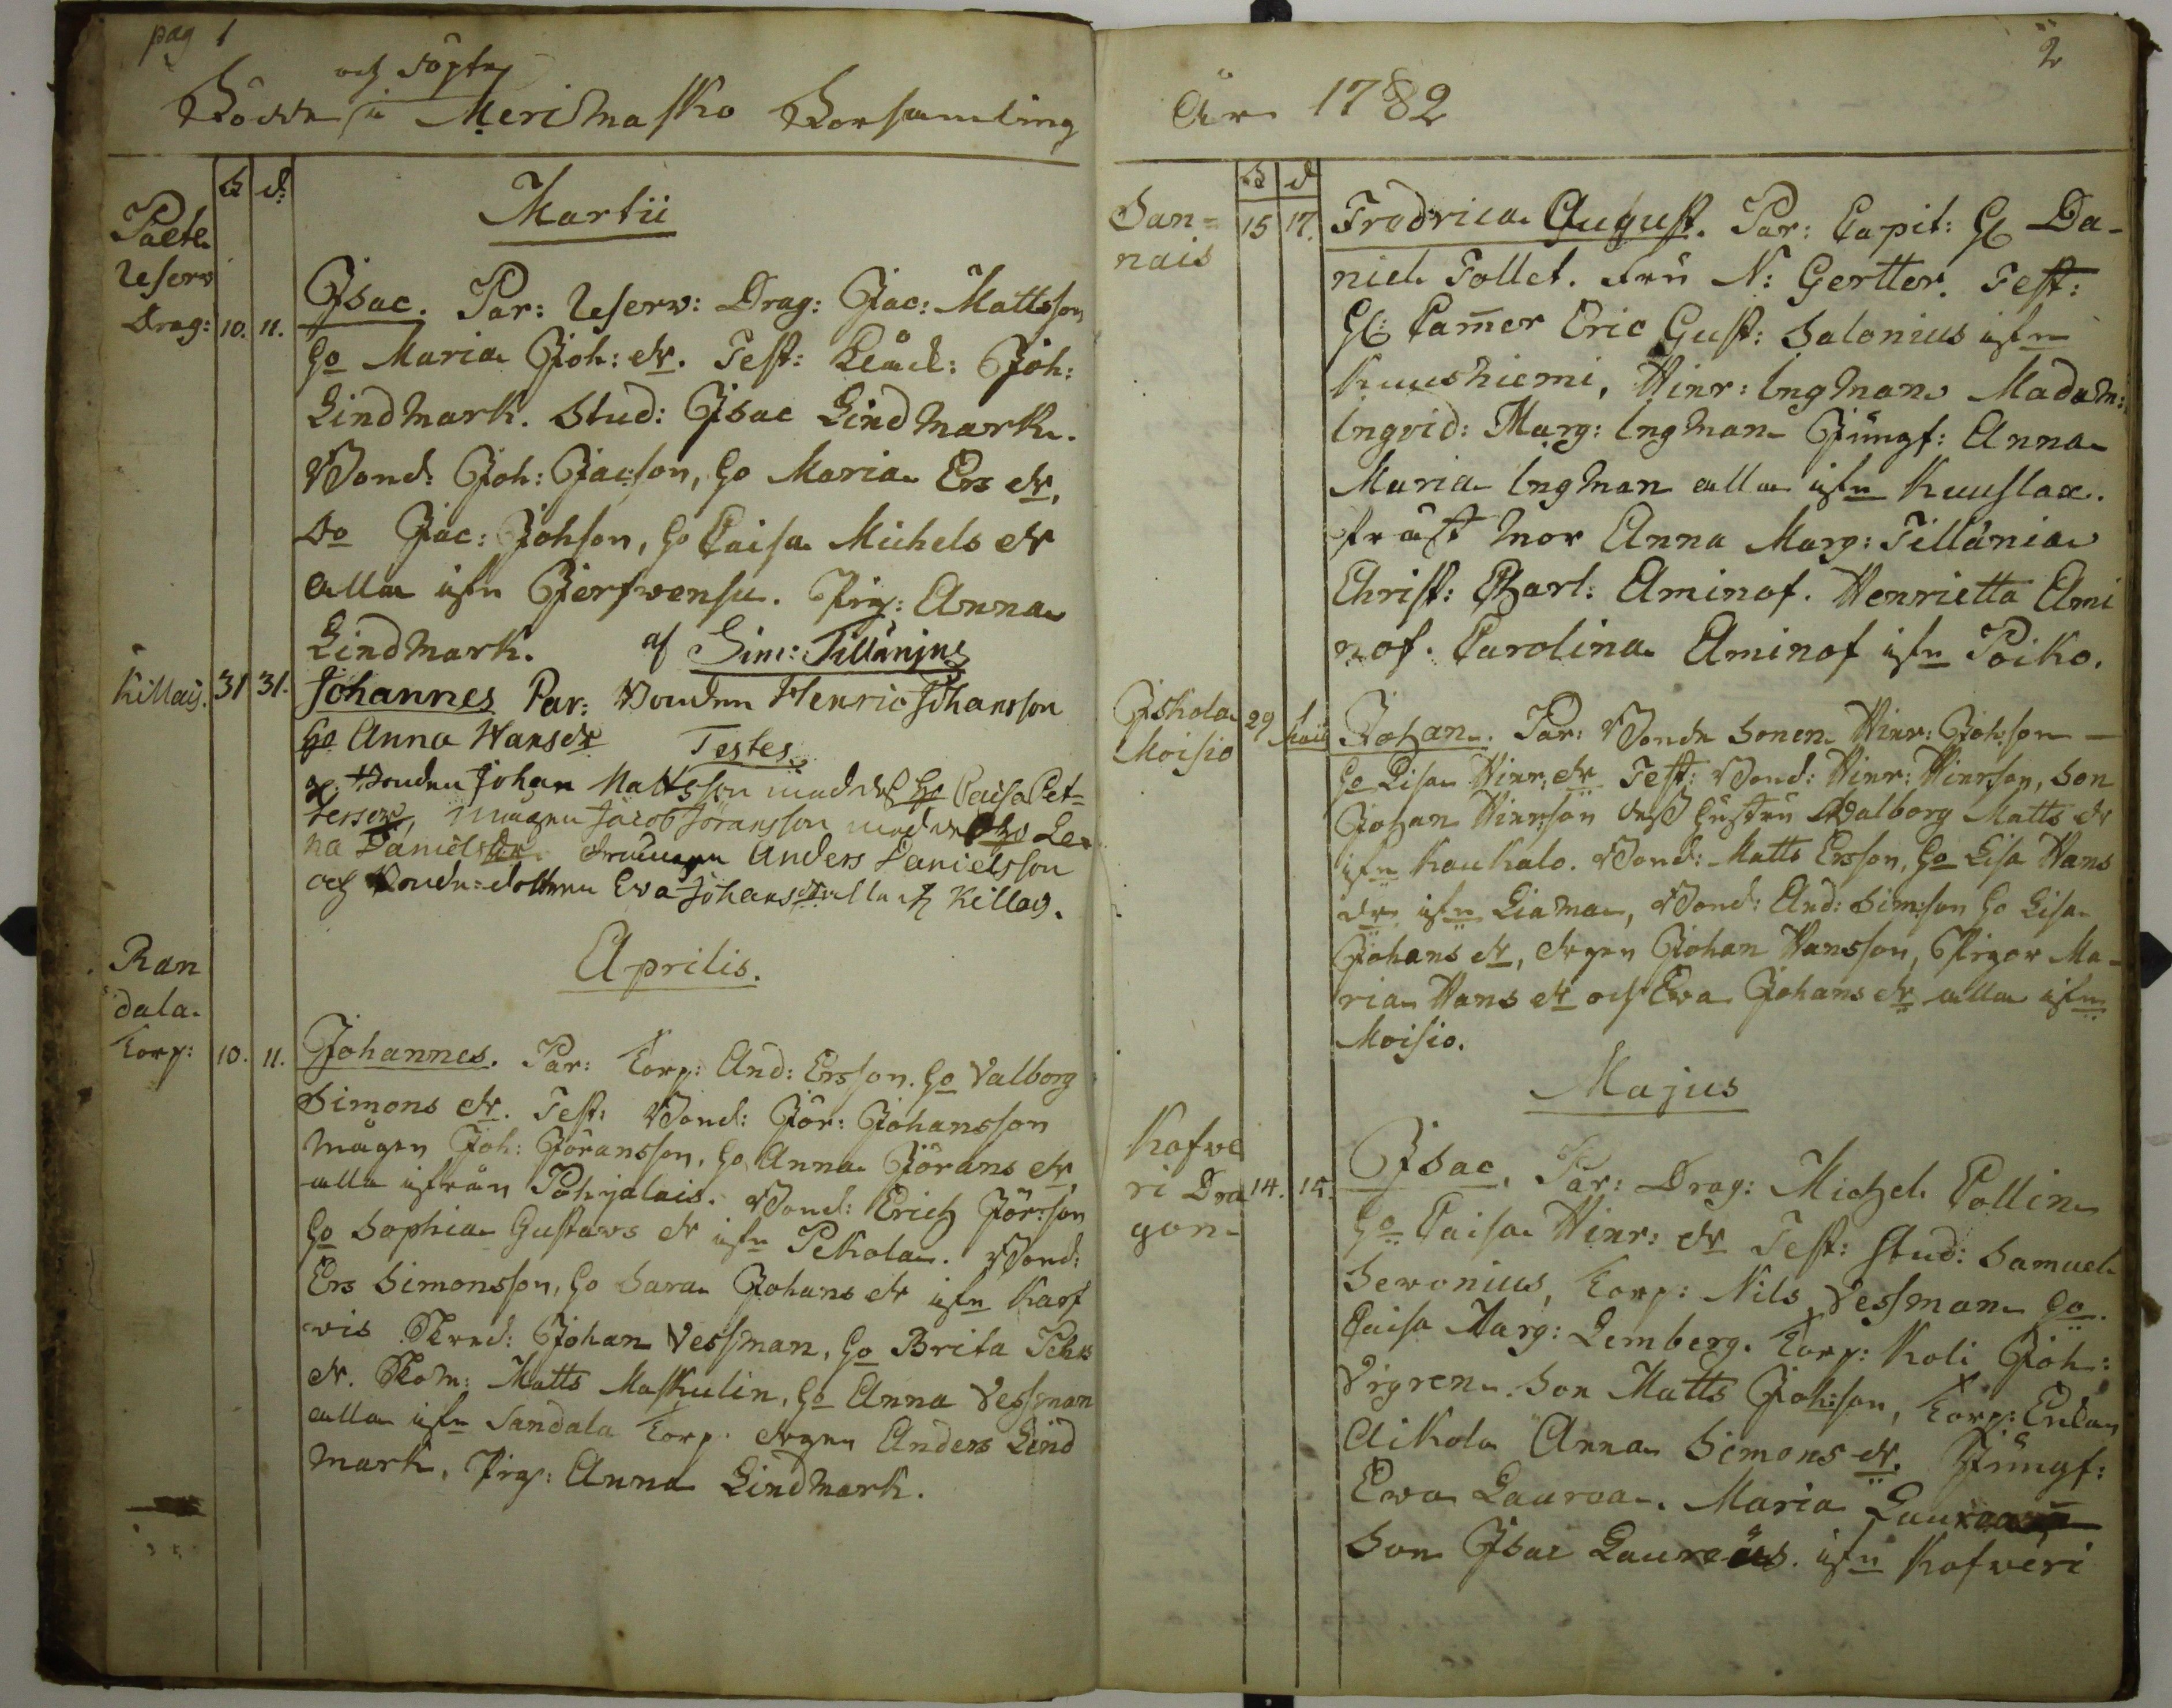 pag 1
och döpte
Födde i Merimasko Församling
Martii
F d:
Paete
Reserv
Drag: 10. 11.
Isac. Par: Reserv: Drag: Jac: Mattsson
Ho Maria Joh: dr. Test: Klåck: Joh:
Lindmark. Stud: Isac Lindmark.
Bond: Joh: Jacson, Ho Maria Ers dr,
Do Jac: Johson, Ho Caisa Michels dr
alla ifrn Jerfwensu. Pig: Anna
Lindmark. af Sim: Tillänius
Killais. 31 31. Johannes Par: Bonden Henric Johansson
Ho Anna Hansdr Testes.
Bonden Johan Mattsson med dess Ho Caisa Pet=
tersdr, mågen Jacob Jöransson med dess Ho Le
na Danielsdr. Anders Danielsson
och Bonde=dottren Eva Johansdr alla fr Killais.
Aprilis.
Ran
dala
Torp: 10. 11.
Johannes. Par: Torp: And: Ersson. Ho Valborg
Simons dr. Test: Bond: Jör: Johansson
mågen Joh: Jöransson, Ho Anna Jörans dr,
alla ifrån Pohjalais. Bond: Erich Jörsson
Ho Sophia Gustavs dr ifrn Pekola. Bond:
Ers Simonsson, Ho Sara Johans dr ifrn Karf
vis Skrad: Johan Vessman, Ho Brita Pehrs
dr. Skom: Matts Maskulin, Ho Anna Vessman
alla ifrn Sandala Torp. drgen Anders Lind
mark, Pig: Anna Lindmark.
2
År 1782
F d
San=
nais 15 17.
Fredrica August. Par: Capit: H Da-
niel Tollet. Fru N: Gertter. Test:
H: Camer Eric Gust: Salonius ifrn
Kuusniemi, Hinr: Ingman Madam:
Ingrid: Marg: Ingman Jungf: Anna
Maria Ingman alla ifrn Kuuslax.
Prästmor Anna Marg: Tillänia
Christ: Charl: Aminof. Henrietta Ami
nof. Carolina Aminof ifrn Poiko.
Iskola
Moisio 29 1 Maii
Johan. Par: Bonde Sonen Hinr: Johsson -
Ho Lisa Hinr: dr Test: Bond: Hinr: Hinrsson, Son
Johan Hinrson dess hustru Walborg Matts dr
ifrn Kaukalo. Bond: Matts Ersson, Ho Lisa Hans
dr ifrn Liama, Bond: And: Simson Ho Lisa
Johans dr, drgen Johan Hansson, Pigor Ma-
ria Hans dr och Ewa Johans dr alla ifrn
Moisio.
Majus
Kofve
ri Dra
gon 14. 15.
Isac. Par: Drag: Michel Collin
Ho Caisa Hinr: dr Test: Stud: Samuel
Seronius, Torp: Nils Vessman Ho
Caisa Marg: Lemberg. Torp: Koli Joh:
Vigren. Son Matts Johson, Torp: Enkan
Aikola Anna Simons dr. Jungf:
Ewa Laurœa. Maria
Son Isac Laureus. ifrn Kofveri